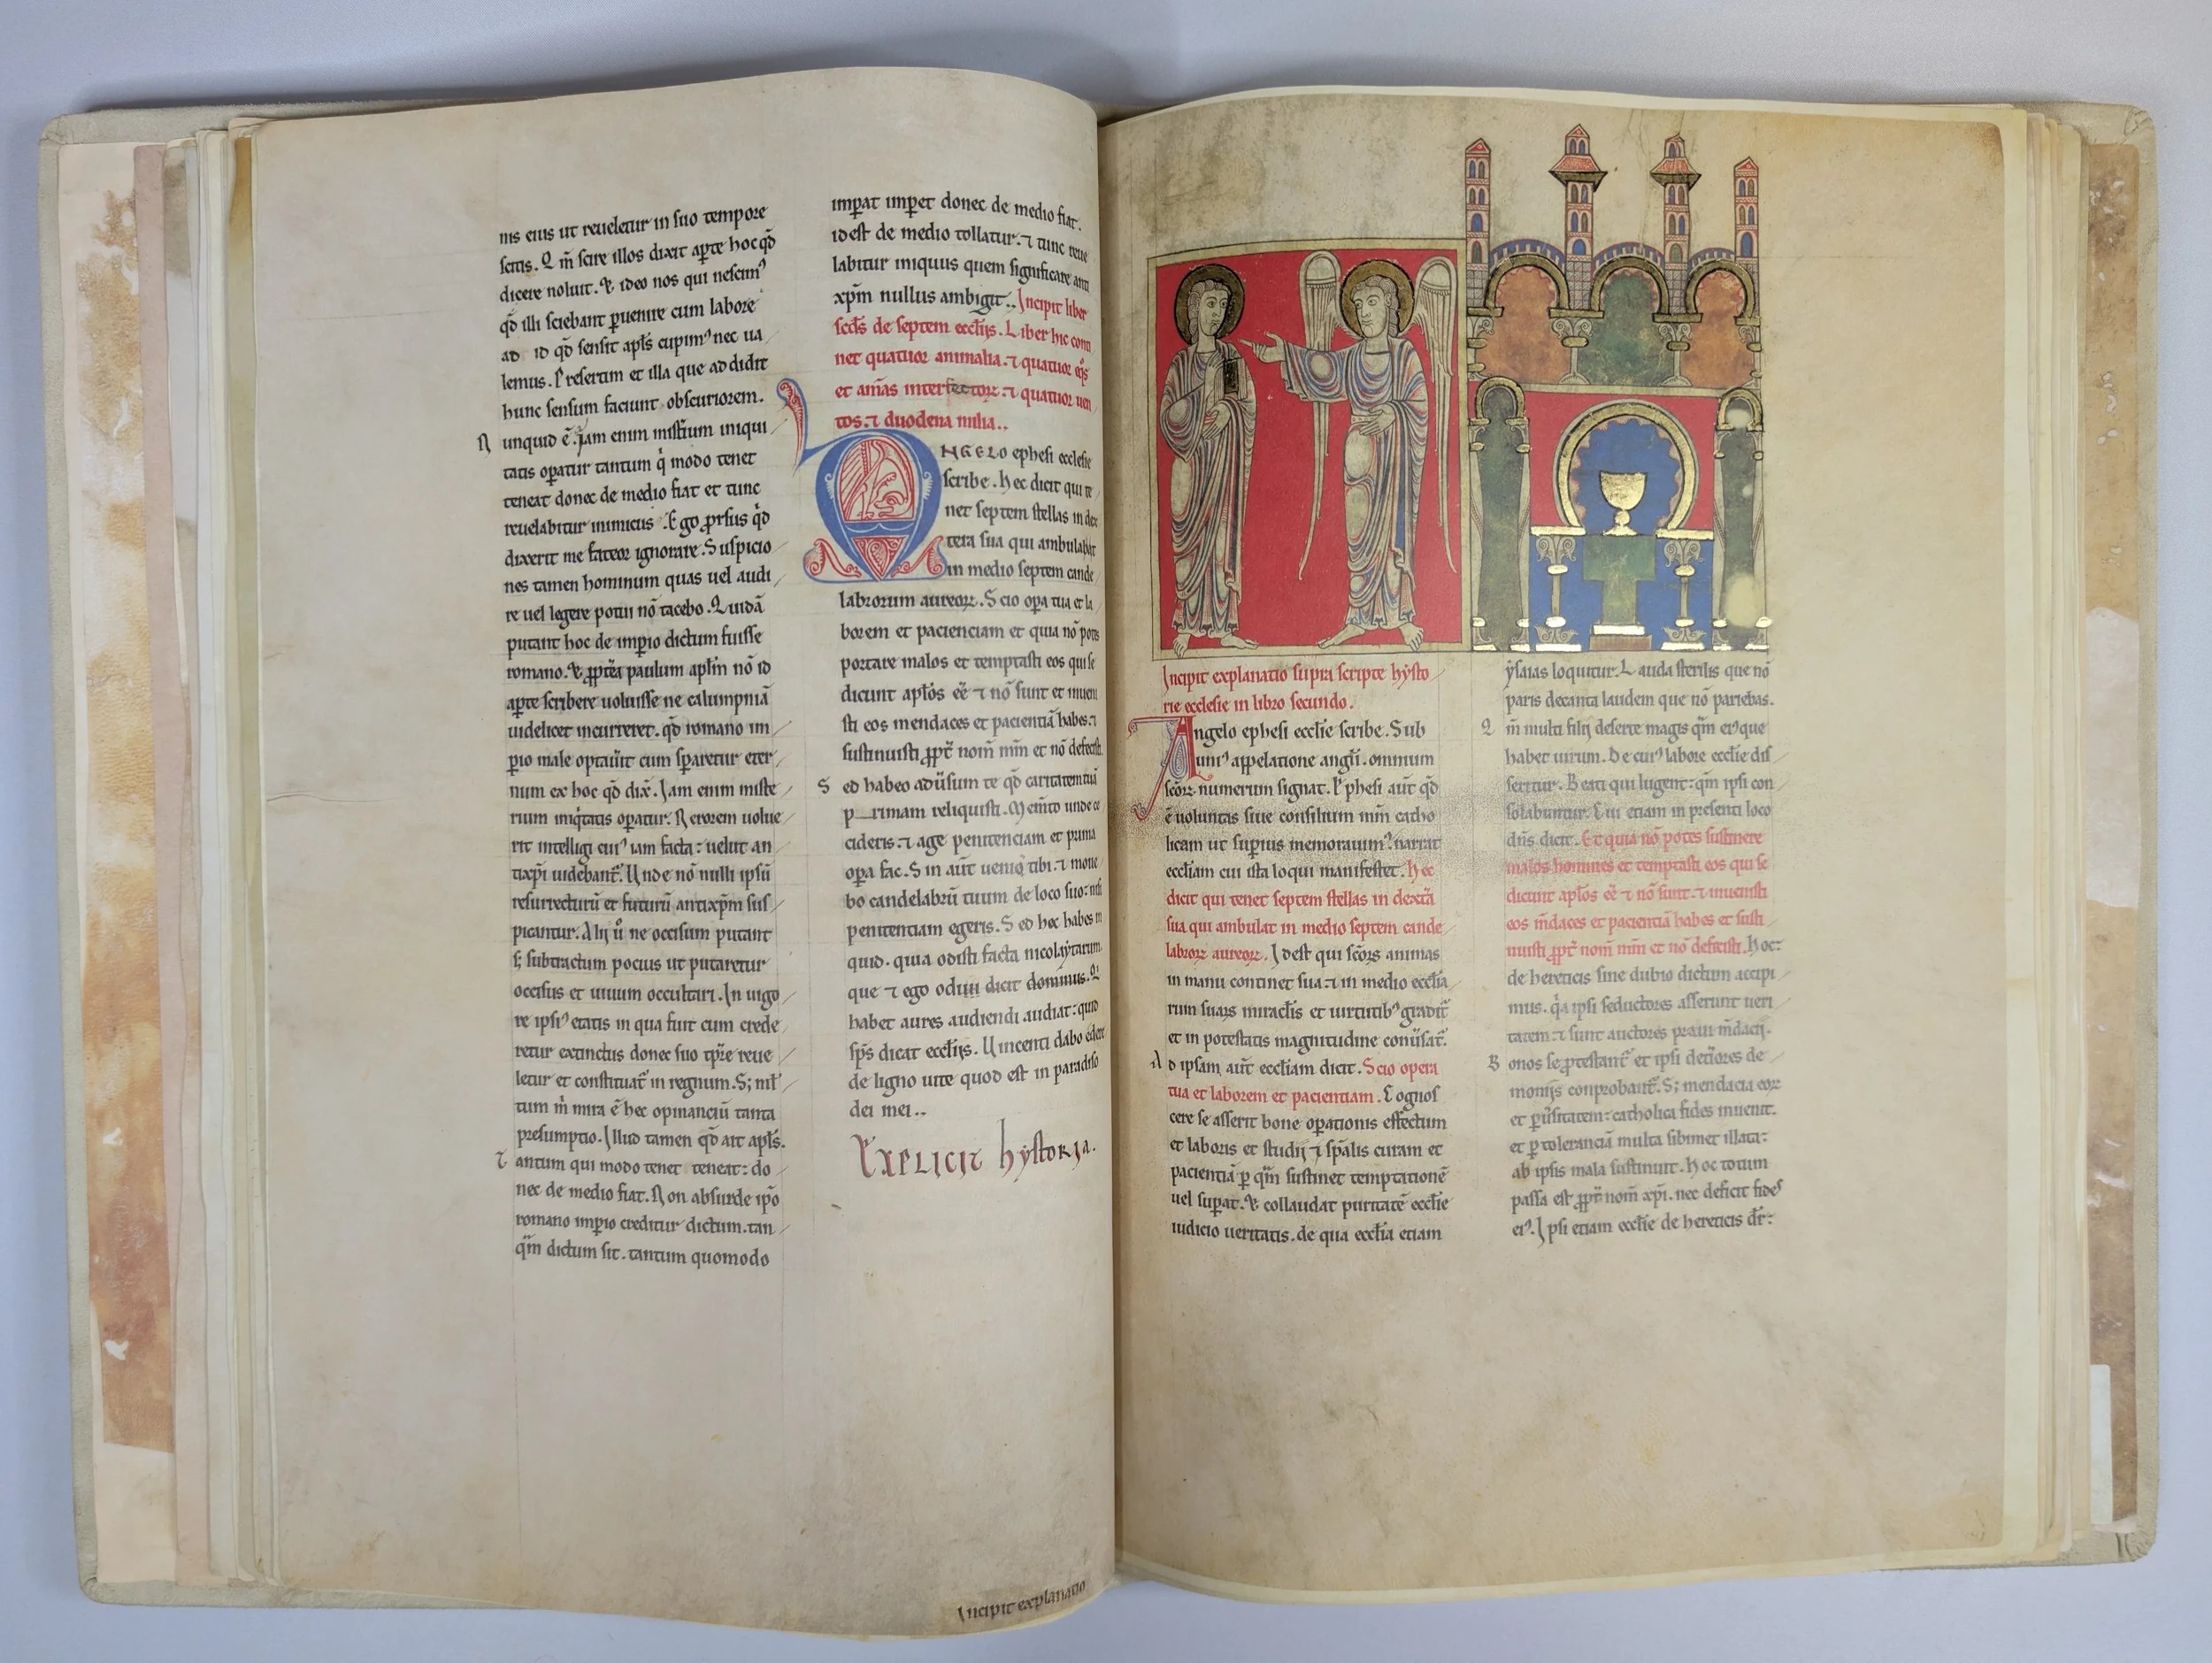 nis eius ut reueletur in suo tempore
scitis. Q m̄ scire illos dixit aꝑte hoc qđ
dicere noluit. & ideo nos qui nescimꝰ
qđ illi sciebant ꝑuenire cum labore
ad id qđ sensit apl̄s cupimꝰ nec ua
lemus. Presertim et illa que addidit
hunc sensum faciunt obscuriorem.
N unquid ē. Jam enim mist̄ium iniqui
tatis oꝑatur tantum q̇ modo tenet
teneat donec de medio fiat et tunc
reuelabitur inimicus. Ego ꝓrsus qđ
dixerit me fateor ignorare. Suspicio
nes tamen hominum quas uel audi
re uel legere potui nō tacebo. Quidā
putant hoc de imꝑio dictum fuisse
romano. & ꝓpt̄ea paulum apl̄m nō id
aꝑte scribere uoluisse ne calumpniā
uidelicet incurreret. qđ romano im
ꝑio male optau̅it cum sꝑaretur eter
num ex hoc qđ dix̄. Jam enim miste
rium iniq̇tatis oꝑatur. Neronem uolue
rit intelligi cuiꝰ iam facta: uelut an
tixp̄i uidebant᷑. Unde nō nulli ipsū
resurrecturū et futurū antixp̄m sus
picantur. Alij ů ne occisum putant
s; subtractum pocius ut putaretur
occisus et uiuum occultari. In uigo
re ipsiꝰ etatis in qua fuit cum crede
retur extinctus donec suo tp̄re reue
letur et constituat᷑ in regnum. S; ml̄
tum m̄ mira ē hec opinanciū tanta
presumptio. Illud tamen qđ ait apl̄s.
⁊ antum qui modo tenet teneat: do
nec de medio fiat. Non absurde ip̄o
romano imꝑio creditur dictum. tan
q̄m dictum sit. tantum quomodo
imꝑat imꝑet donec de medio fiat.
idest de medio tollatur. ⁊ tunc reue
labitur iniquus quem significare anti
xp̄m nullus ambigit.. Incipit liber
scd̄s de septem eccl̄ijs. Liber hic conti
net quatuor animalia. ⁊ quatuor eq̊s
et aīas interfectorꝝ. ⁊ quatuor uen
tos. ⁊ duodena milia..
ANGELO ephesi ecclesie
scribe. Hec dicit qui te
net septem stellas in dex
tera sua qui ambulabat
in medio septem cande
labrorum aureorꝝ. Scio oꝑa tua et la
borem et pacienciam et quia nō potes
portare malos et temptasti eos qui se
dicunt apl̄os eē ⁊ nō sunt et inueni
sti eos mendaces et pacientiā habes. ⁊
sustinuisti ꝓpt̄ nom̄ m̄m et nō defecisti.
S ed habeo adu̅sum te qđ caritatem tuā
p_rimam reliquisti. Mem̄to unde ce
cideris. ⁊ age penitenciam et prima
oꝑa fac. Sin aūt uenio tibi. ⁊ moue
bo candelabrū tuum de loco suo: nisi
penitentiam egeris. Sed hec habes in
quid. quia odisti facta nicolaytarum.
que ⁊ ego odiui dicit dominus. Qi
habet aures audiendi audiat: quid
sp̄s dicat eccl̄ijs. Uincenti dabo edere
de ligno uite quod est in paradiso
dei mei..
EXPLICIT hystorja.
Incipit explanatio
Incipit explanatio supra scripte hysto
rie ecclesie in libro secundo.
Angelo ephesi eccl̄ie scribe. Sub
uniꝰ appelatione angl̄i. omnium
sc̄orꝝ numerum signat. Ephesi aūt qđ
ē uoluntas siue consilium m̄m catho
licam ut suꝑius memoratum. narrat
eccl̄iam cui ista loqui manifestet. hec
dicit qui tenet septem stellas in dextā
sua qui ambulat in medio septem cande
labrorꝝ aureorꝝ. Idest qui sc̄orꝝ animas
in manu continet sua. ⁊ in medio eccl̄ia
rum suaꝝ miracl̄is et uirtutibꝰ gradit᷑
et in potestatis magnitudine conu̅sat᷑.
A d ipsam aūt eccl̄iam dicit. Scio opera
tua et laborem et pacientiam. Cognos
cere se asserit bone oꝑationis effectum
et laboris et studij ⁊ sp̄alis curam et
pacientiā ꝑ q̄m sustinet temptationē
uel suꝑat. & collaudat puritatē eccl̄ie
iudicio ueritatis. de qua eccl̄ia etiam
ysaias loquitur. Lauda sterilis que nō
paris decanta laudem que nō pariebas.
Q m̄ multi filij deserte magis q̄m eiꝰ que
habet uirum. De cuiꝰ labore eccl̄ie dis
seritur. Beati qui lugent: q̄m ipsi con
solabuntur. Cui etiam in presenti loco
dn̄s dicit. Et quia nō potes sustinere
malos homines et temptasti eos qui se
dicunt apl̄os eē ⁊ nō sunt. ⁊ inuenisti
eos m̄daces et pacientiā habes et susti
nuisti ꝓpt̄ nom̄ m̄m et nō defecisti. Hoc:
de hereticis sine dubio dictum accipi
mus. q̇a ipsi seductores asserunt ueri
tatem. ⁊ sunt auctores praui m̄dacij.
B onos se ꝓtestant᷑ et ipsi det̄iores de
monijs conprobant᷑. S; mendacia eorꝝ
et ꝑu̅sitatem: catholica fides inuenit.
et ꝑ toleranciā multa sibimet illata:
ab ipsis mala sustinuit. Hoc totum
passa est ꝓpt̄ nom̄ xp̄i. nec deficit fides
eiꝰ. Ipsi etiam eccl̄ie de hereticis dr̄: